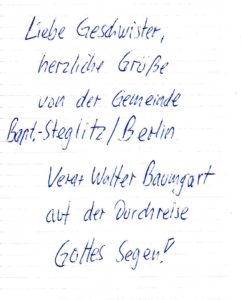 Liebe Geschwister,
herzliche Grüße
von der Gemeinde
Bapt.-Steglitz/Berlin
Vera+Walter Baumgart
auf der Durchreise
Gottes Segen!